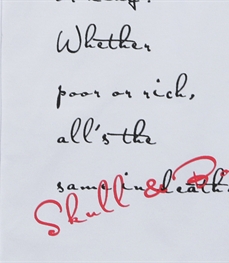 Whether
poor or rich,
all's the
same in death.
Skull &